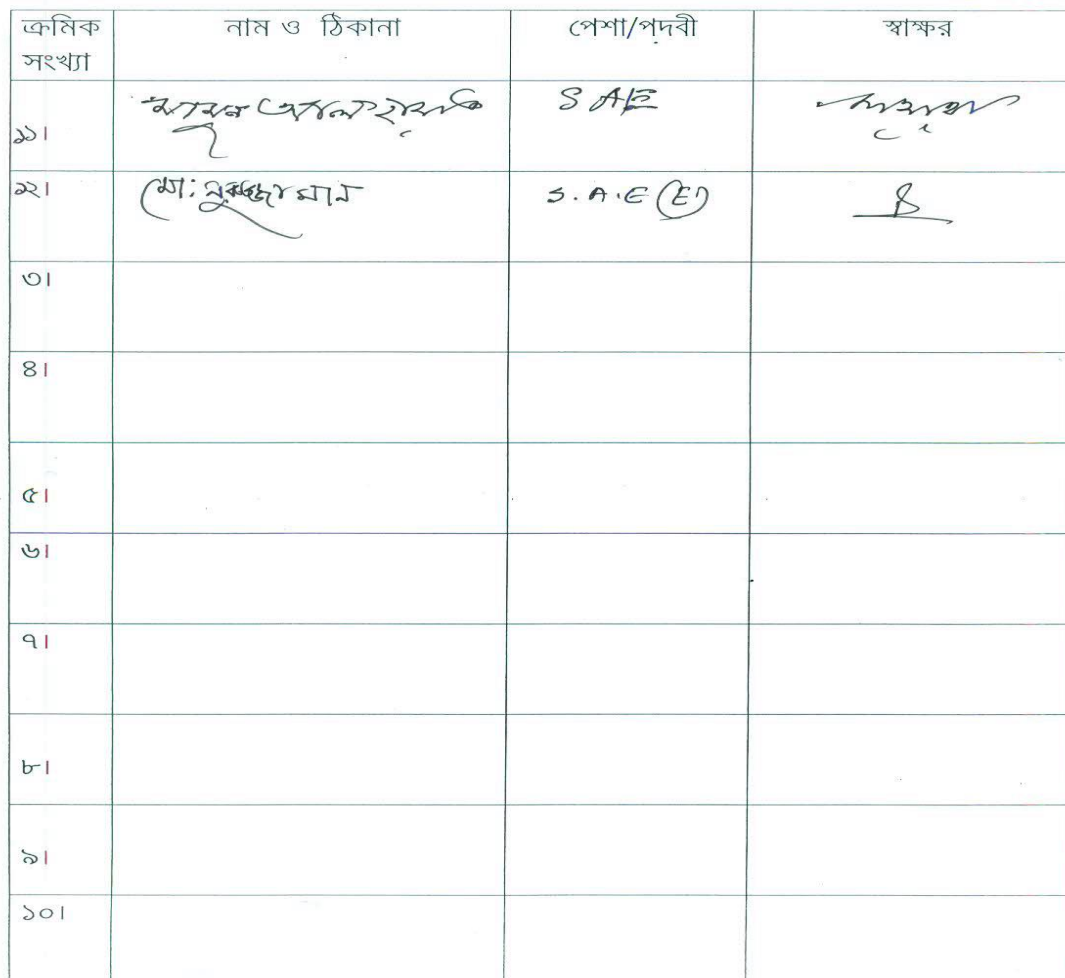 ক্রমিক সংখ্যা নাম ও ঠিকানা পেশা/পদবী স্বাক্ষর
১১। মামুন আল SAE
১২। মো: নুরুজ্জামান S.A.E (E)
৩।
৪।
৫।
৬।
৭।
৮।
৯।
১০।